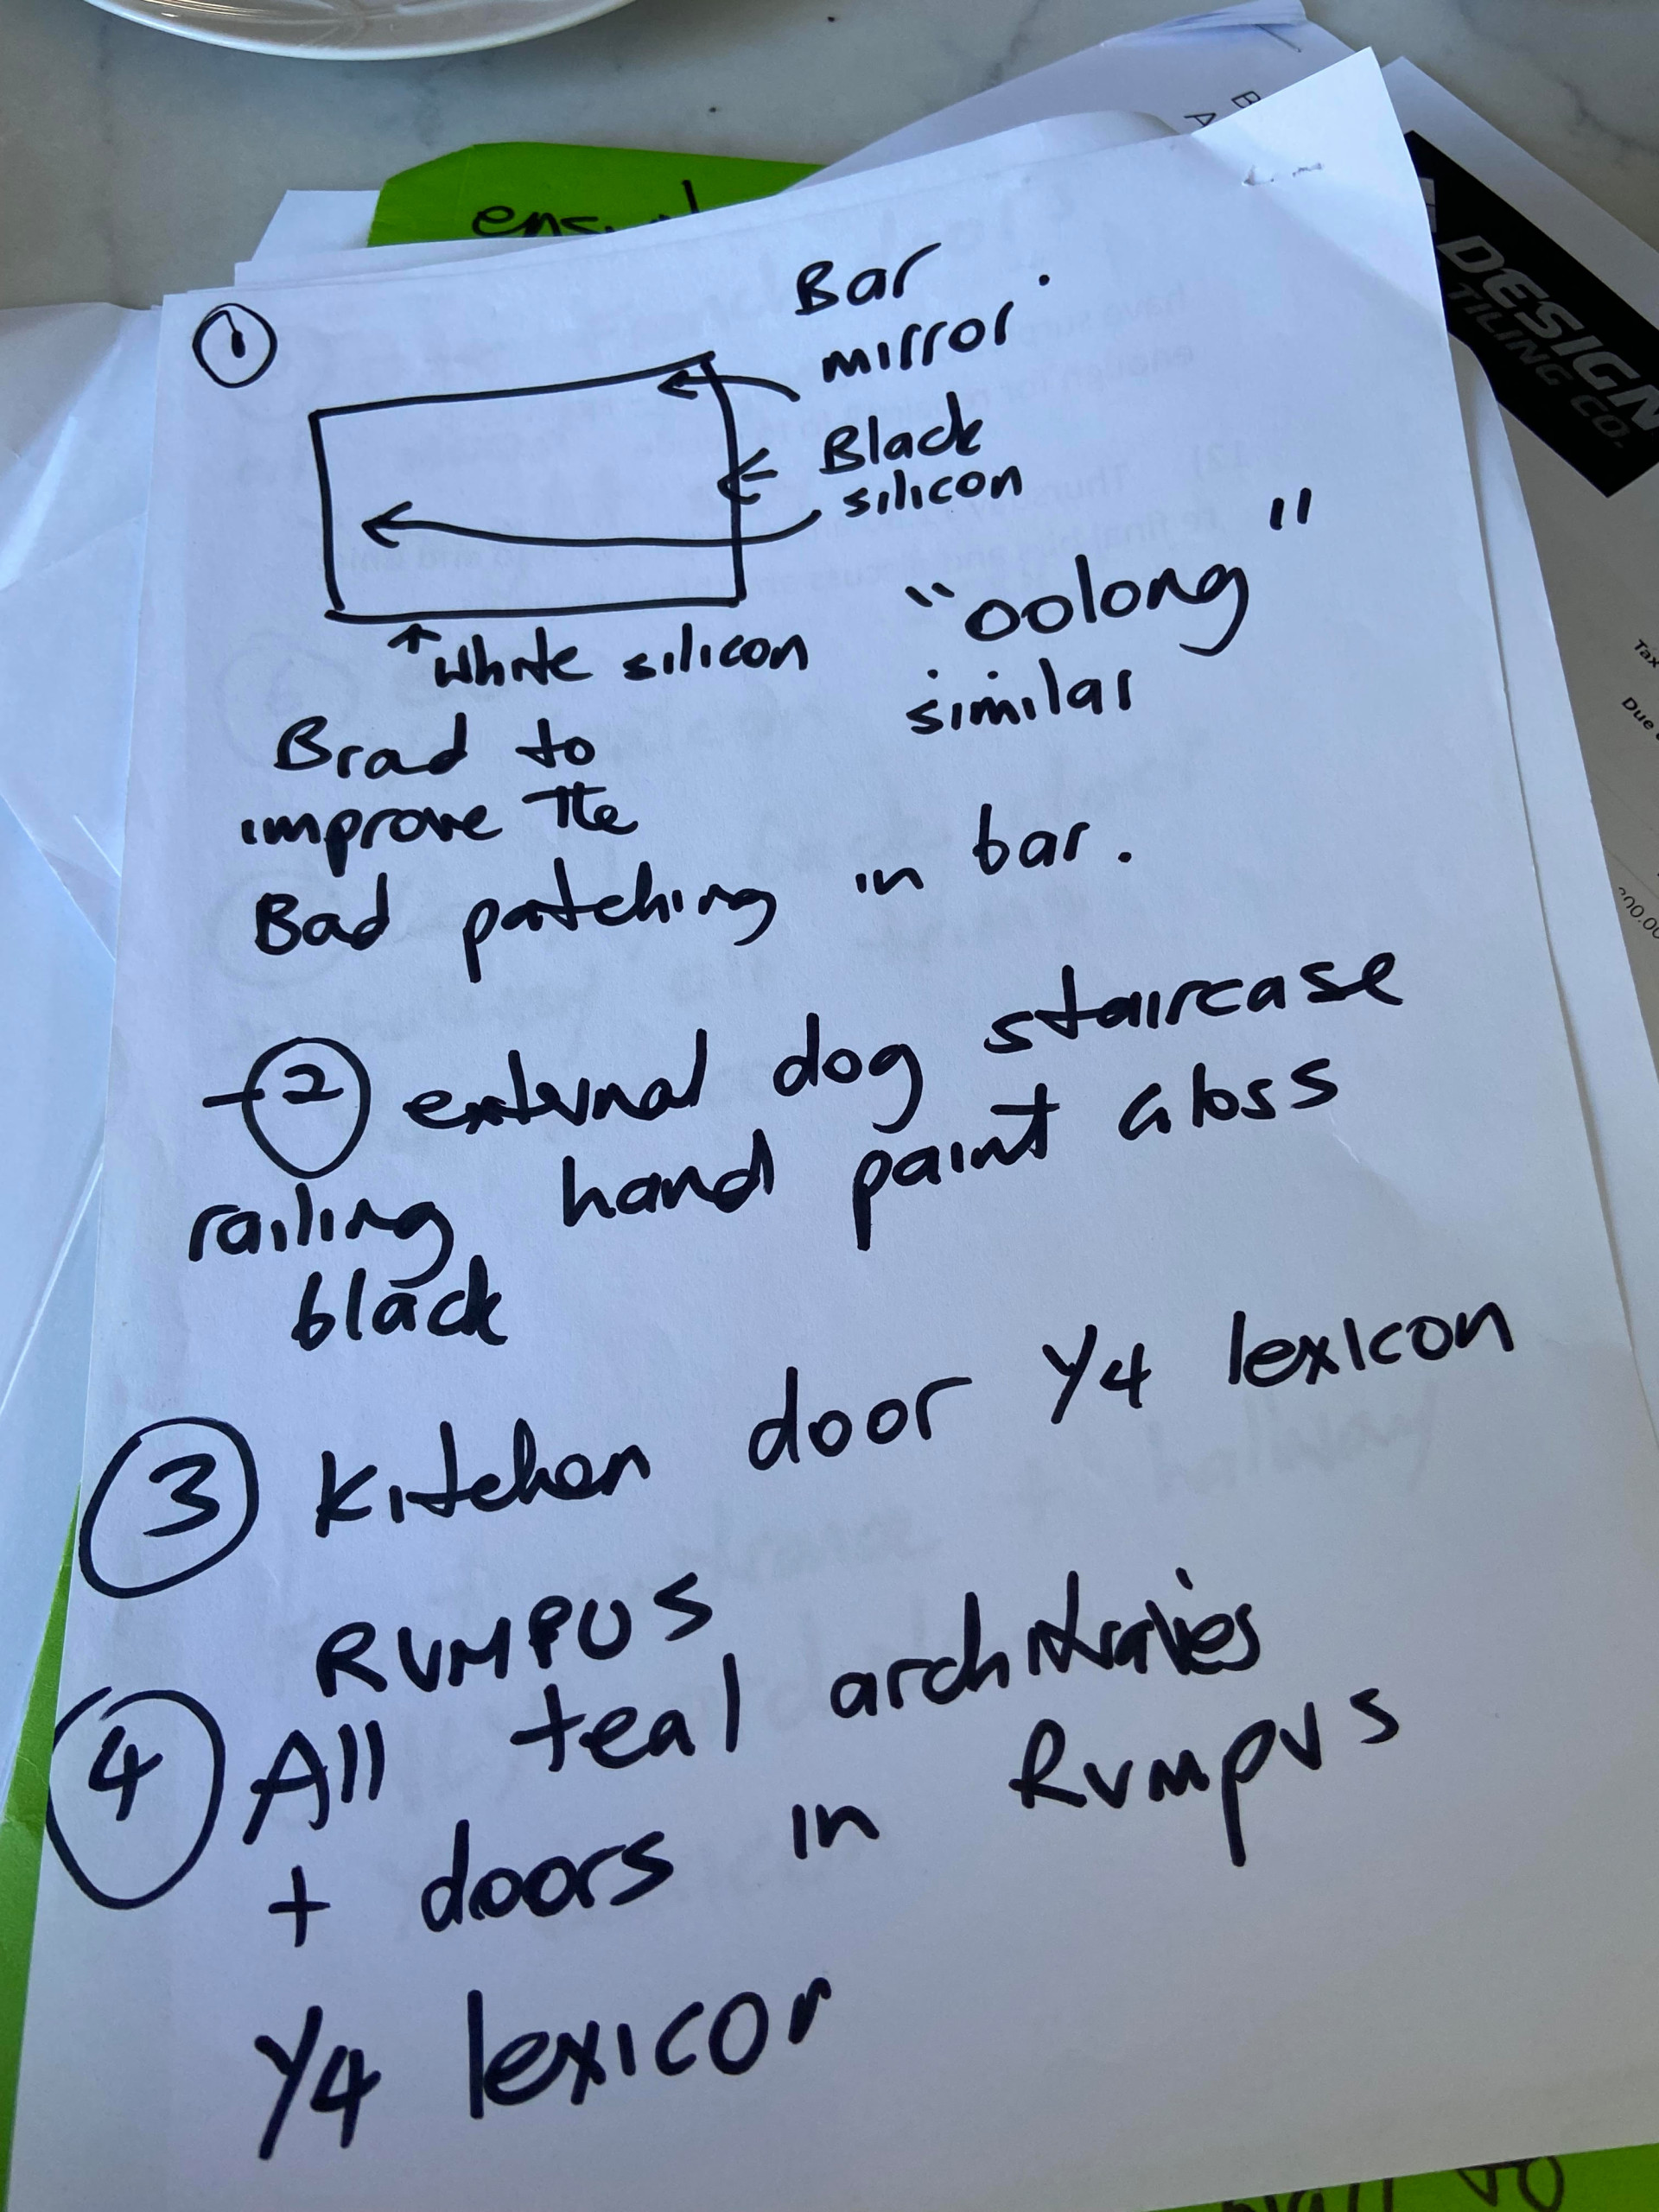 ens
DESIGN
TILING CO.
Tax
Due
00.00
1
Bar
mirror.
Black
silicon
White silicon
"oolong"
similar
Brad to
improve the
Bad patching in bar.
2 external dog staircase
railing hand paint Gloss
black
3 Kitchen door Y4 lexicon
RUMPUS
4 All teal architraves
+ doors in Rumpus
Y4 lexicon